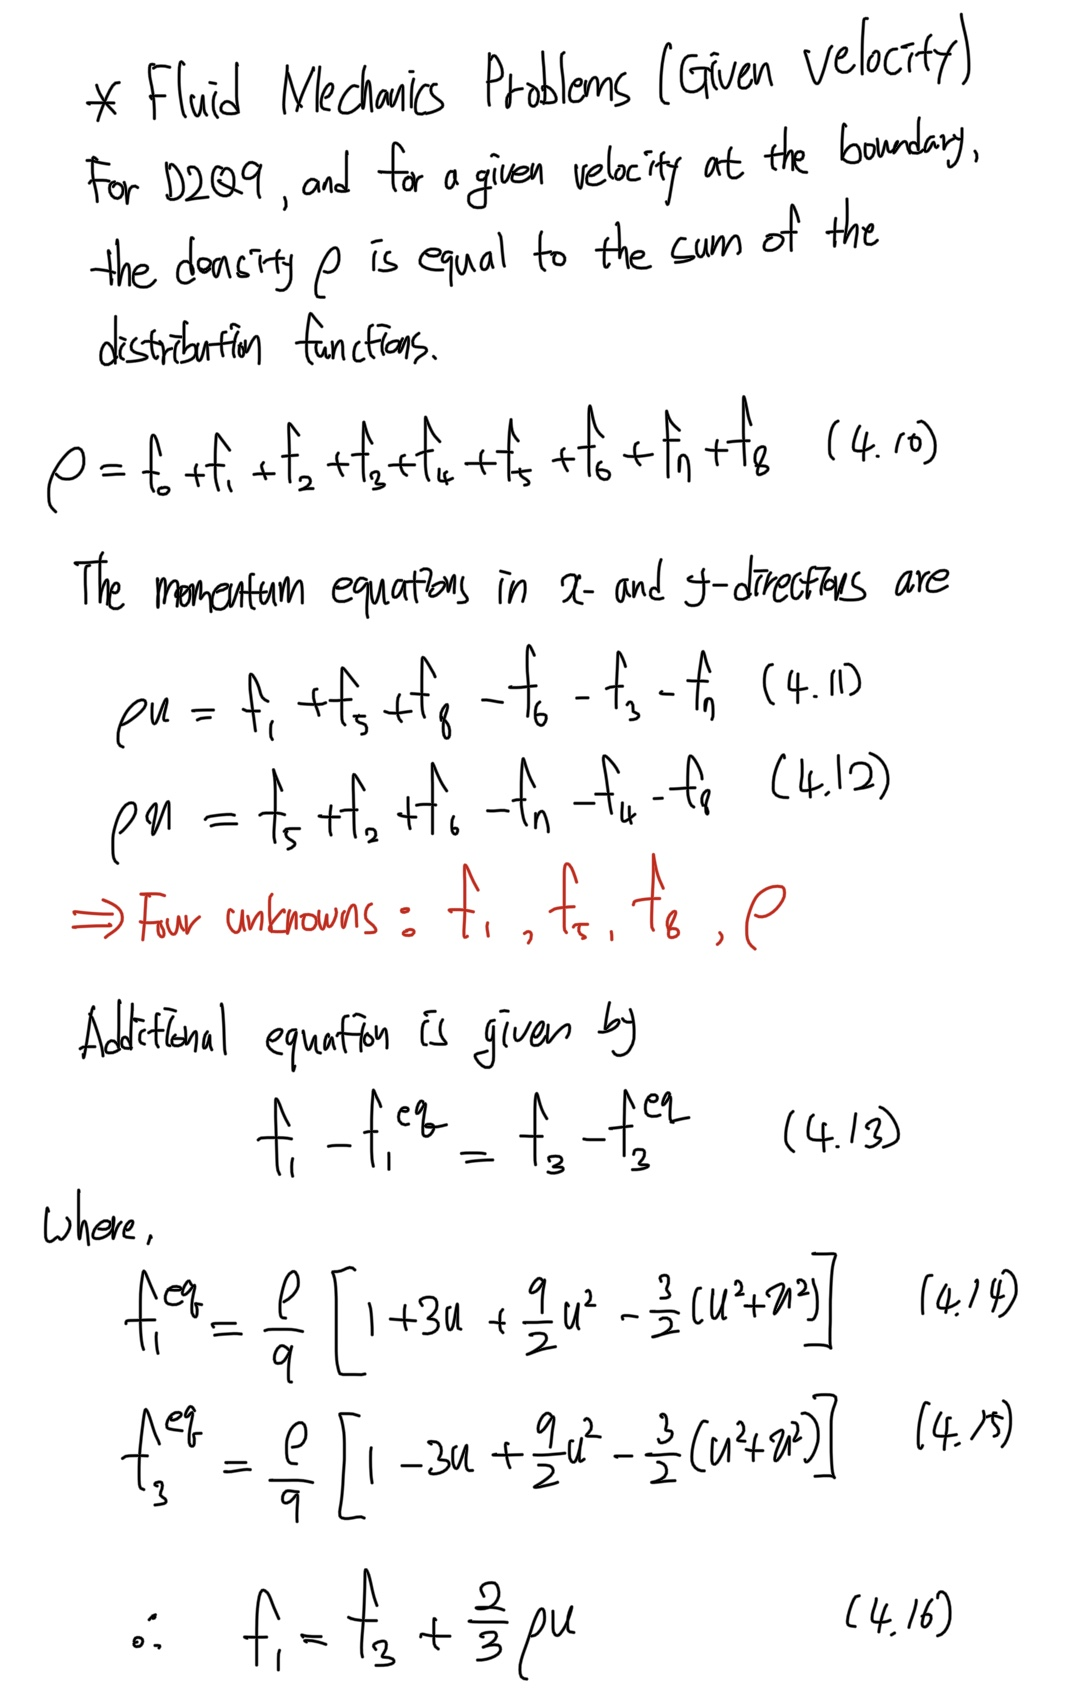 * Fluid Mechanics Problems (Given velocity)
For D2Q9, and for a given velocity at the boundary,
the density ρ is equal to the sum of the
distribution functions.
ρ = f₀ + f₁ + f₂ + f₃ + f₄ + f₅ + f₆ + f₇ + f₈ (4.10)
The momentum equations in x- and y-directions are
ρu = f₁ + f₅ + f₈ - f₆ - f₃ - f₇ (4.11)
ρv = f₅ + f₂ + f₆ - f₇ - f₄ - f₈ (4.12)
⇒ Four unknowns : f₁, f₅, f₈, ρ
Additional equation is given by
f₁ - f₁^eq = f₃ - f₃^eq (4.13)
where,
f₁^eq = ρ/9 [1 + 3u + 9/2 u² - 3/2 (u² + v²)] (4.14)
f₃^eq = ρ/9 [1 - 3u + 9/2 u² - 3/2 (u² + v²)] (4.15)
∴ f₁ = f₃ + 2/3 ρu (4.16)